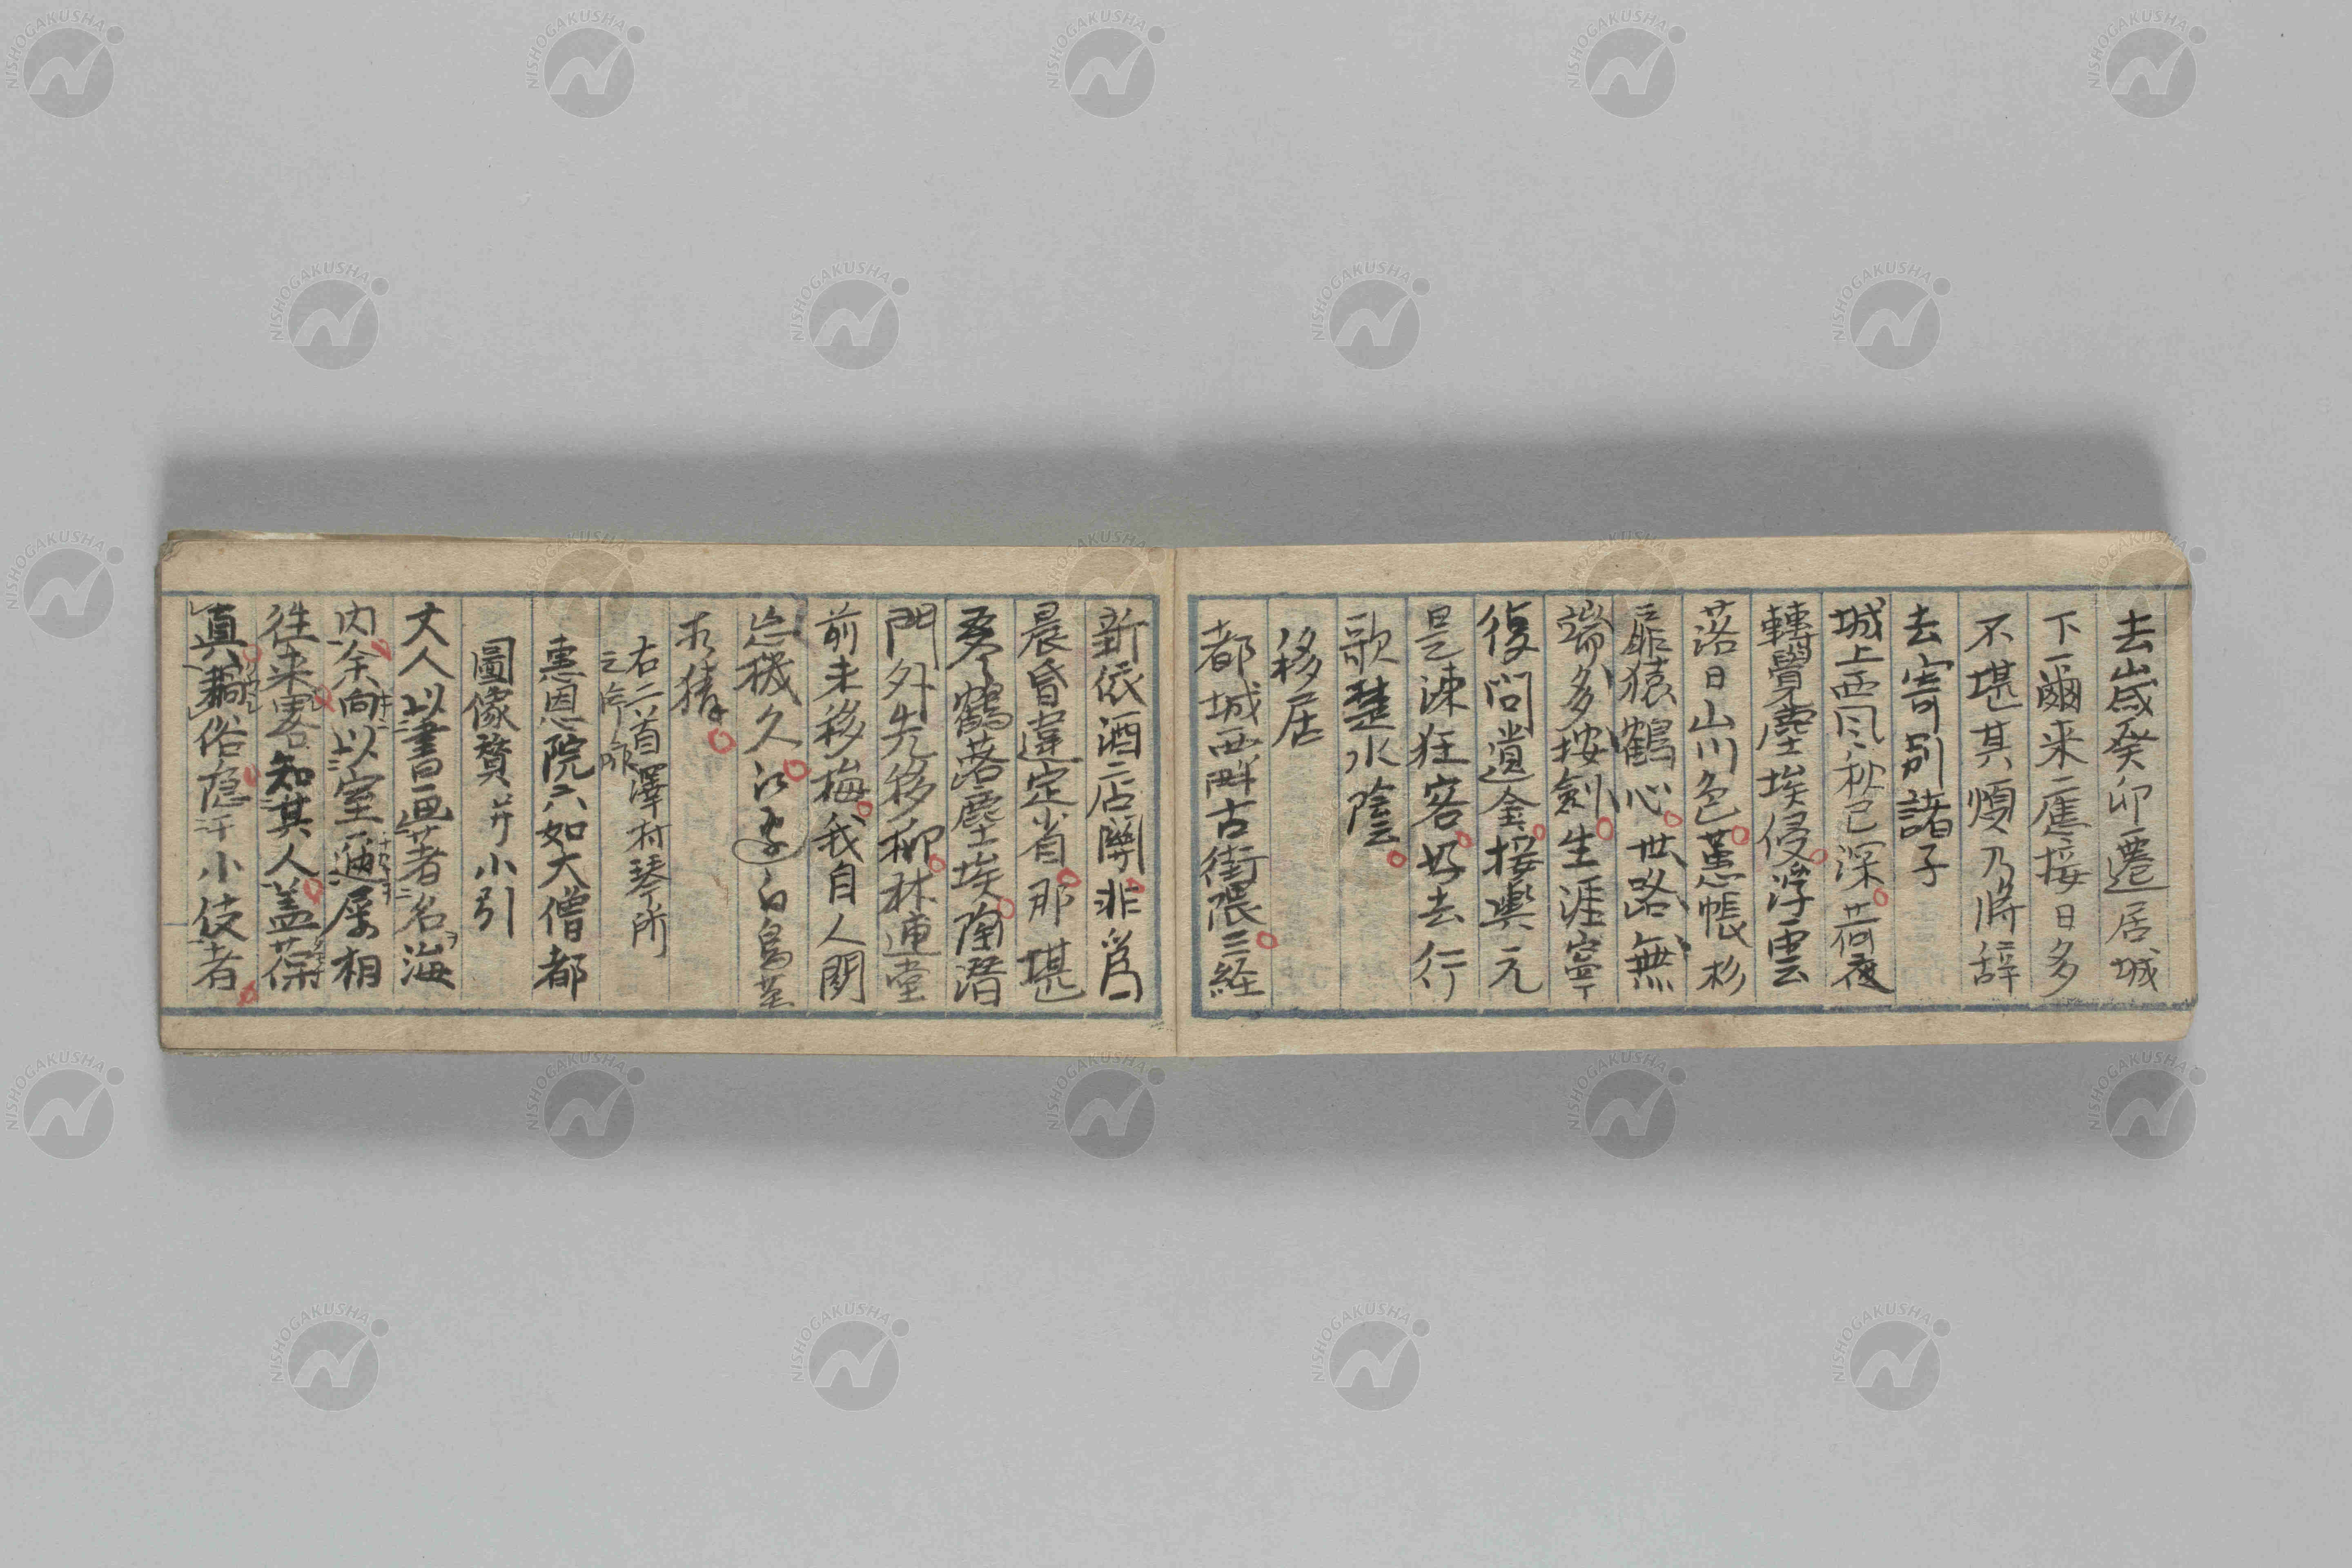 去歳癸卯遷居城
下爾来應接日多
不堪其煩乃將辞
去寄別諸子
城上西風秋已深荷衣
轉覺塵埃侵浮雲
落日山川色蕙帳杉
扉猿鶴心世路無
端多按劍生涯寧
復問遺金接輿元
是疎狂客好去行
歌楚水陰
移居
都城西畔古街隈三経
新依酒店開非為
晨昏違定省那堪
琴鶴落塵埃陶潜
門外先移柳林逋堂
前未移梅我自人間
忘機久江邊白鳥莫
相猜
右二首澤村琴所
之所
惠恩院六如大僧都
圖像賛并小引
丈人以書画著名海
内余向以室邇屡相
往来畧知其人蓋葆
真藏俗隐于小伎者
NISHOGAKUSHA